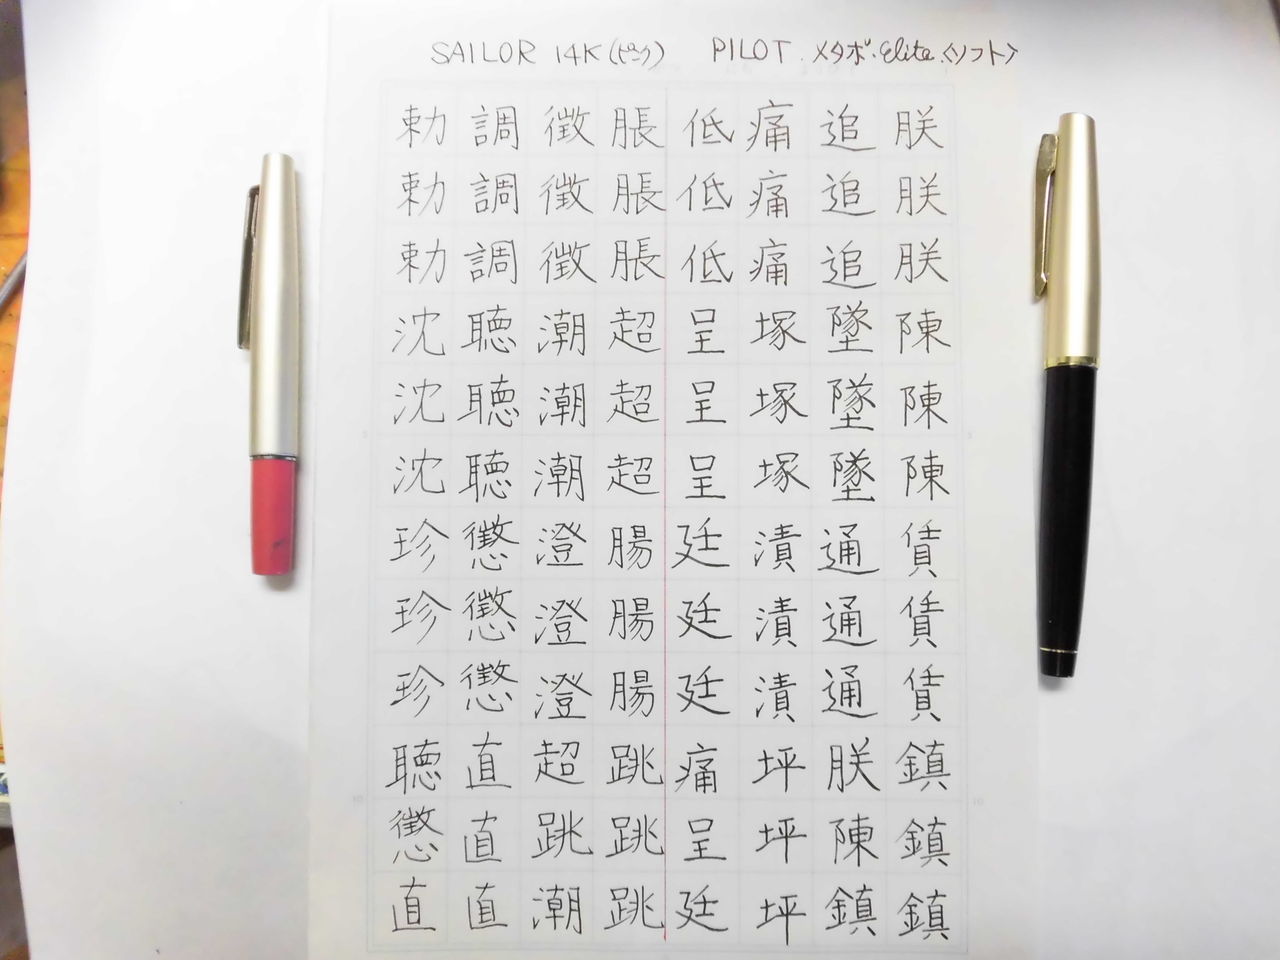 SAILOR 14K(ピンク)
PILOT.メタボ.Elite.<ソフト>
朕朕朕陳陳陳賃賃賃鎮鎮鎮
追追追墜墜墜通通通朕陳鎮
痛痛痛塚塚塚漬漬漬坪坪坪
低低低呈呈呈廷廷廷痛呈廷
脹脹脹超超超腸腸腸跳跳跳
徴徴徴潮潮潮澄澄澄超跳潮
調調調聴聴聴懲懲懲直直直
勅勅勅沈沈沈珍珍珍聴懲直